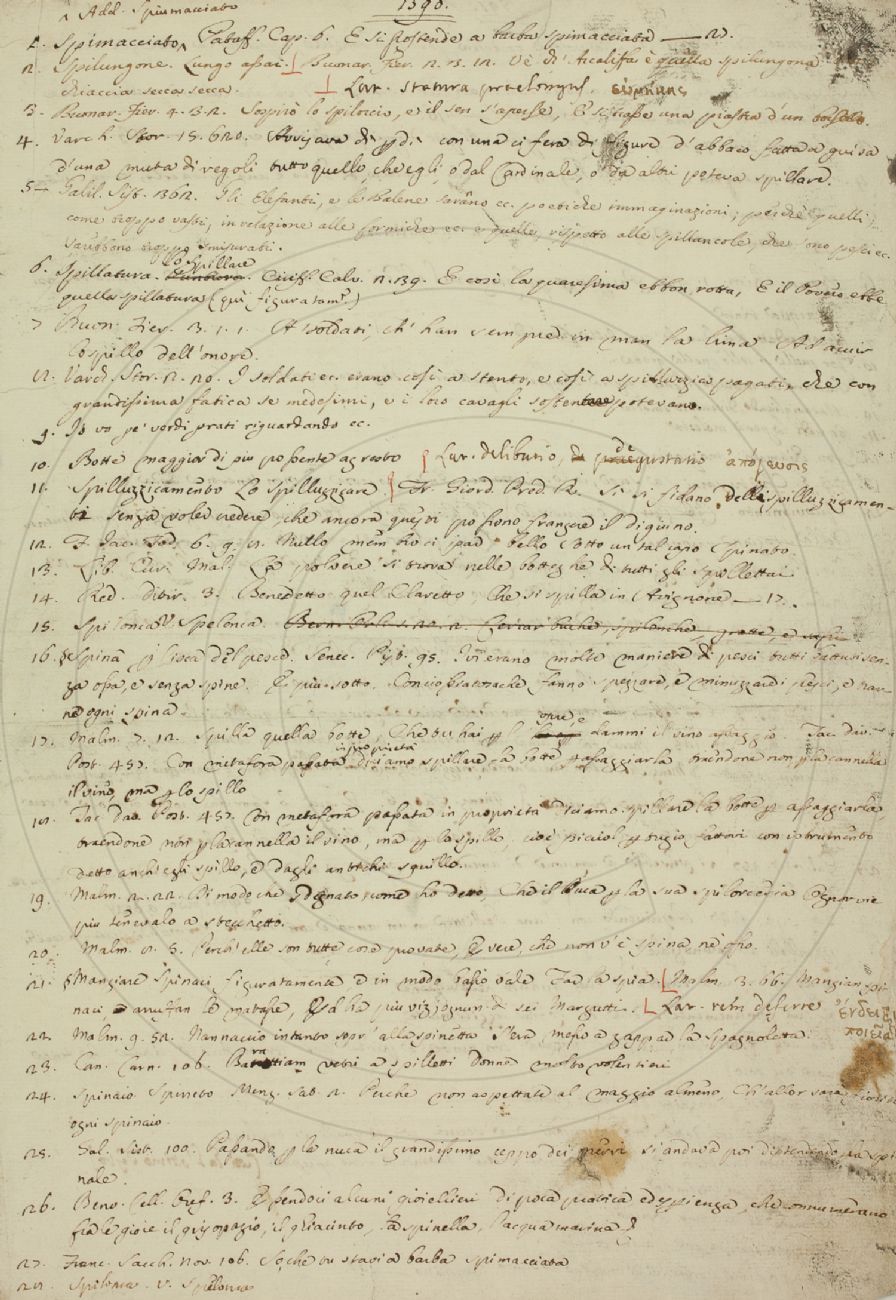 1390.
^ Add. Spiumacciato
1. Spimacciato^ Pataff. Cap. 6. E si stostende a barba spimacciata — 27.
2. Spilungone. Lungo assai. Buonar. Fier. 2. è quella spilungona
secca secca. Lat. statura praelongus. εὐμήκης
3. Buonar. Fier. 4. 3. 2. Sospirò lo spilorcio, e il sen s'aperse, E scusosse una piastra d'un
4. Varch. Stor. 15. 620. Avvisava di con una cifera di figure d'abbaco fatta a guisa
d'una muta di regoli tutto quello, che egli, o dal Cardinale, o da altri poteva spillare.
5. Galil. Sist. Gli Elefanti, e le Balene saranno ec. poetiche immaginazioni; perchè quelli
come troppo vasti, in relazione alle formiche ec. e quelle, rispetto alle spillancole, che sono pesci ec.
sarebbono troppo smisurati.
lo spillare
6. Spillatura. Ciriff. Calv. 2. E così la quaresima ebbon rotta, E il Povero ebbe
quella spillatura (qui figuratam.)
7 Buon. Fier. 3. 1. 1. A soldati, ch' han sempre in man la lima Ad acuir
lo spillo dell'onore.
8. Varch. Stor. 2. 20. I soldati ec. erano così a stento, e così a spilluzzico pagati, che con
grandissima fatica se medesimi, e i loro cavagli sostentare potevano.
9. Io vo pe' verdi prati riguardando ec.
10. Botte maggior di più possente agresto Lat. delibatio, degustatio ἀπόγευσις
11. Spilluzzicamento Lo spilluzzicare Fr. Giord. Pred. R. Si si fidano delli spilluzzicamen-
ti senza voler credere, che ancora questi possono frangere il digiuno.
12. F. Jac. Tod. 6. 9. Nullo
13. Lib. Cur. Mal. La polvere si trova nelle botteghe di tutti gli spillettai
14. Red. ditir. 3. Benedetto quel Claretto, Che si spilla in Avignone — 17.
15. Spilonca V. Spelonca.
16. § Spina p lisca del pesce. Senec. Pist. 95. Ivi erano molte maniere di pesci tutti battuti sen-
za ossa, e senza spine. E più sotto. Conciossiacosachè fanno spezzare, e minuzzare i pesci, e trar-
ne ogni spina.
17. Malm. 7. 12. Spilla quella botte, Che tu hai p le opre, e dammi il vino assaggio Tac. Dav.
Post. 457. Con metafora passata in proprietà diciamo spillare la botte p assaggiarla traendone non p la cannella
il vino, ma p lo spillo
18. Tac. Dav. Post. 457. Con metafora passata in proprietà diciamo spillare la botte p assaggiarla
traendone non p la cannella il vino, ma p lo spillo, cioè piccol pertugio fattovi con istrumento
detto anch'egli spillo, e dagli antichi squillo.
19. Malm. 2. 22. Di modo che sdegnato come ho detto, Che il Duca p la sua spilorceria Ognor vie
più tenevalo a stecchetto.
20. Malm. 8. 5. Perch'elle son tutte cose provate, E vere, che non v'è spina, nè osso.
21. § Mangiare spinaci, figuratamente e in modo basso vale Far la spia. Malm. 3. 66. Mangian spi-
naci, e arruffan le matasse, Ed ha più vizj ognun di sei Margutti. Lat. rem deferre ἔνδειξιν
ποιεῖσθαι
22. Malm. 9. 52. Nannaccio intanto sopr' alla spinetta S'era messo a zappar la spagnoletta.
23. Can. Carn. 106. vetri a spilletti donne molto volentieri
24. Spinaio Spineto Menz. Sat. 2. Perchè non aspettate al maggio almeno, Ch'allor
ogni spinaio.
25. Gal. Sist. 100. Passando p la nuca il grandissimo ceppo dei nervi si andava poi distendendo p la spi-
nale.
26. Benv. Cell. Oref. 3. Essendoci alcuni gioiellieri di poca pratica ed esperienza, che connumerano
fra le gioie il grisopazio, il ghiacinto, la spinella, l'acqua marina
27. Franc. Sacch. Nov. 106. Se che tu stavi a barba spimacciata
28. Spilonca. v. Spelonca